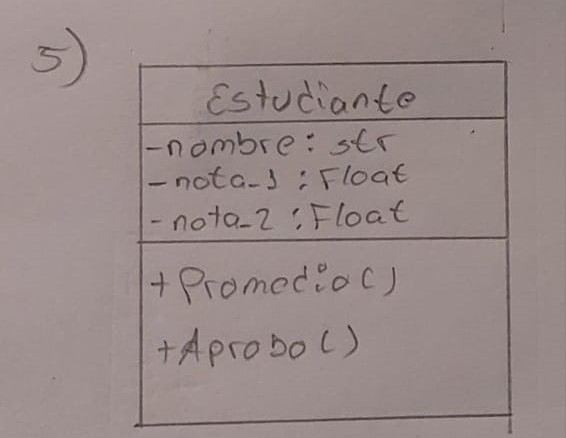 5)
Estudiante
-nombre: str
-nota_1: Float
-nota_2: Float
+Promedio()
+Aprobo()